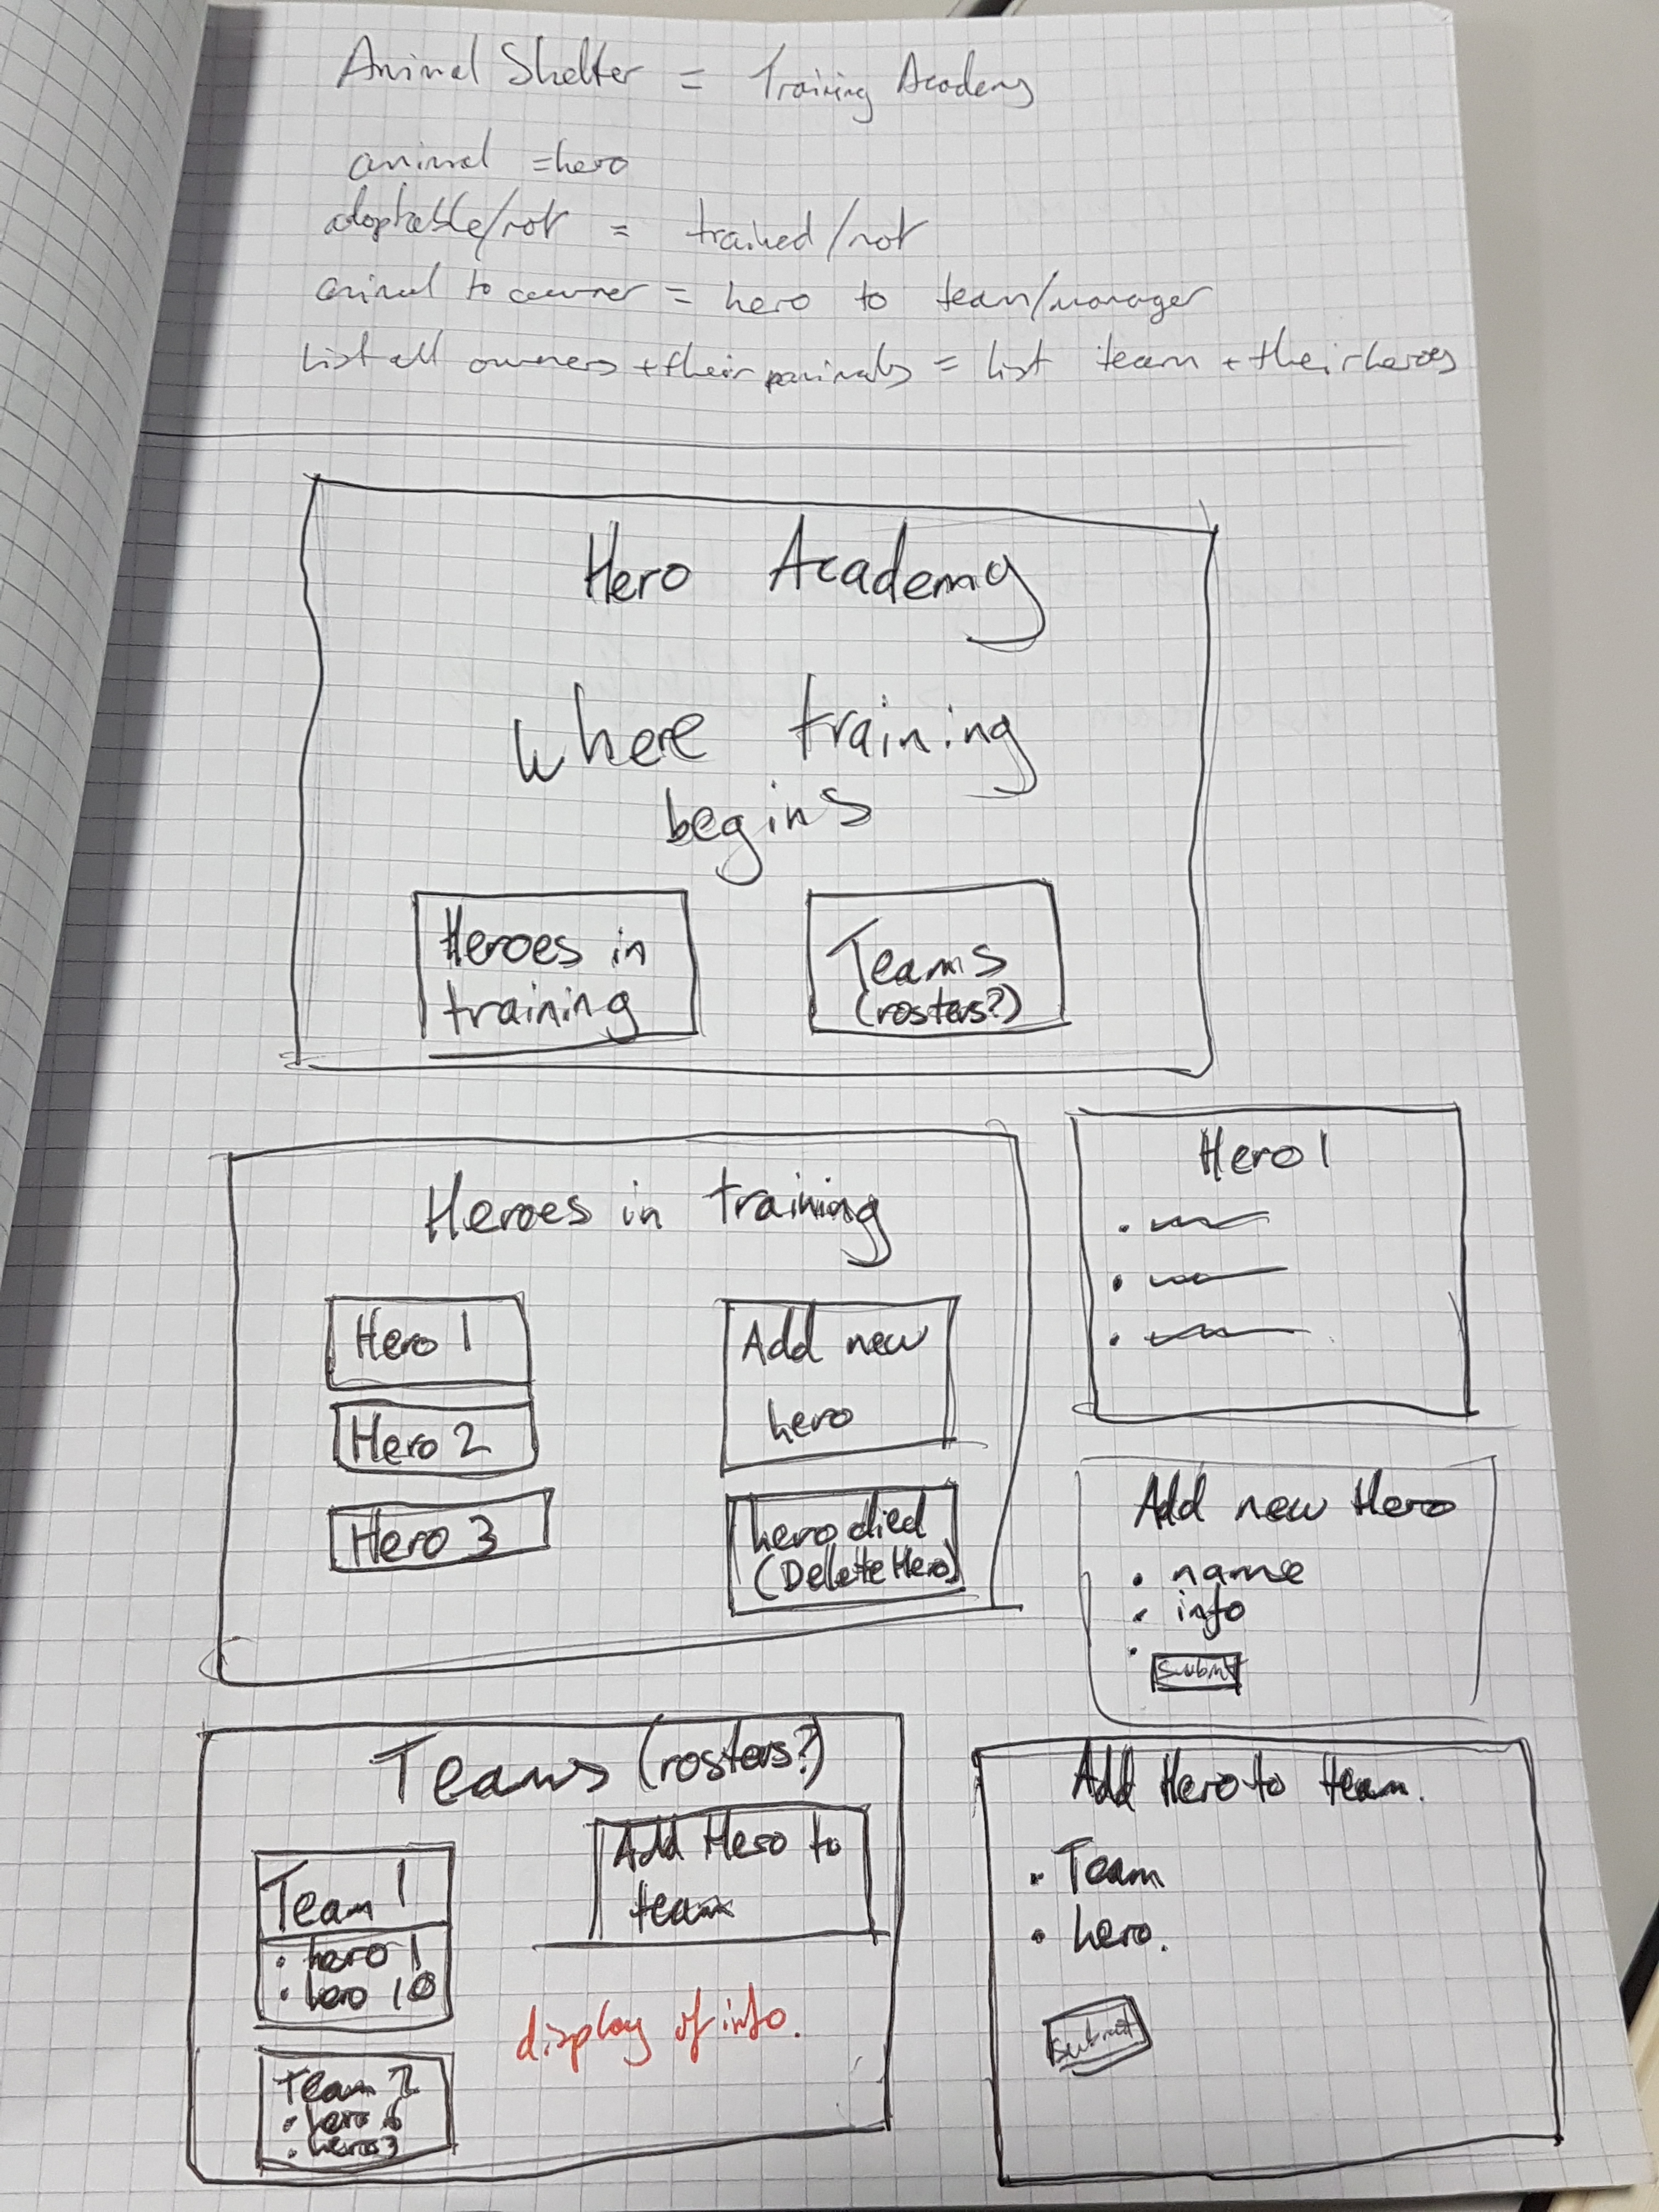 Animal Shelter = Training Academy
animal = hero
adoptable/not = trained/not
animal to owner = hero to team/manager
List all owners + their animals = list team + their heroes
Hero Academy
where training
begins
Heroes in
training
Teams
(rosters?)
Heroes in training
Hero 1
Hero 2
Hero 3
Add new
hero
hero died
(Delete Hero)
Hero 1
Add new Hero
• name
• info
•
Submit
Teams (rosters?)
Team 1
• hero 1
• hero 10
Team 2
• hero 6
• heros 3
Add Hero to
team
display of info.
Add Hero to team.
• Team
• hero.
Submit